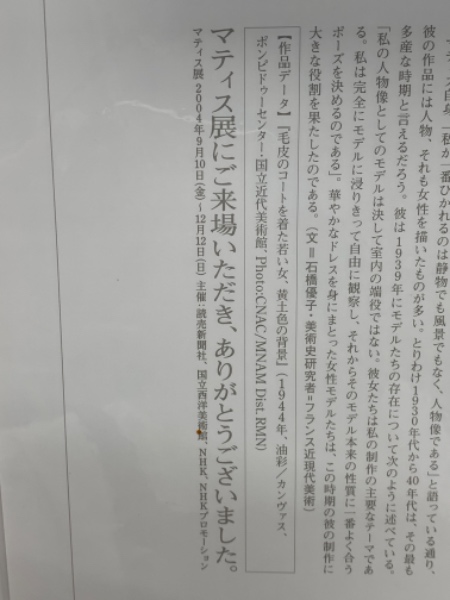 自身「私が一番ひかれるのは静物でも風景でもなく、人物像である」と語っている通り、
彼の作品には人物、それも女性を描いたものが多い。とりわけ1930年代から40年代は、その最も
多産な時期と言えるだろう。彼は1939年にモデルたちの存在について次のように述べている。
「私の人物像としてのモデルは決して室内の端役ではない。彼女たちは私の制作の主要なテーマであ
る。私は完全にモデルに浸りきって自由に観察し、それからそのモデル本来の性質に一番よく合う
ポーズを決めるのである」。華やかなドレスを身にまとった女性モデルたちは、この時期の彼の制作に
大きな役割を果たしたのである。（文＝石橋優子・美術史研究者＝フランス近現代美術）
【作品データ】『毛皮のコートを着た若い女、黄土色の背景』（1944年、油彩／カンヴァス、
ポンピドゥーセンター・国立近代美術館、Photo:CNAC/MNAM Dist. RMN）
マティス展にご来場いただき、ありがとうございました。
マティス展 2004年9月10日（金）～12月12日（日） 主催：読売新聞社、国立西洋美術館、NHK、NHKプロモーション